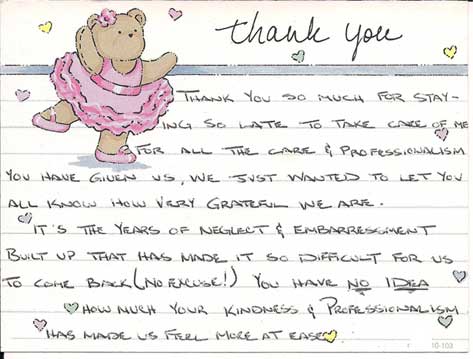 thank you
THANK YOU SO MUCH FOR STAY-
ING SO LATE TO TAKE CARE OF ME
FOR ALL THE CARE & PROFESSIONALISM
YOU HAVE GIVEN US, WE JUST WANTED TO LET YOU
ALL KNOW HOW VERY GRATEFUL WE ARE.
IT'S THE YEARS OF NEGLECT & EMBARRESSMENT
BUILT UP THAT HAS MADE IT SO DIFFICULT FOR US
TO COME BACK (NO EXCUSE!) YOU HAVE NO IDEA
HOW MUCH YOUR KINDNESS & PROFESSIONALISM
HAS MADE US FEEL MORE AT EASE
10-103